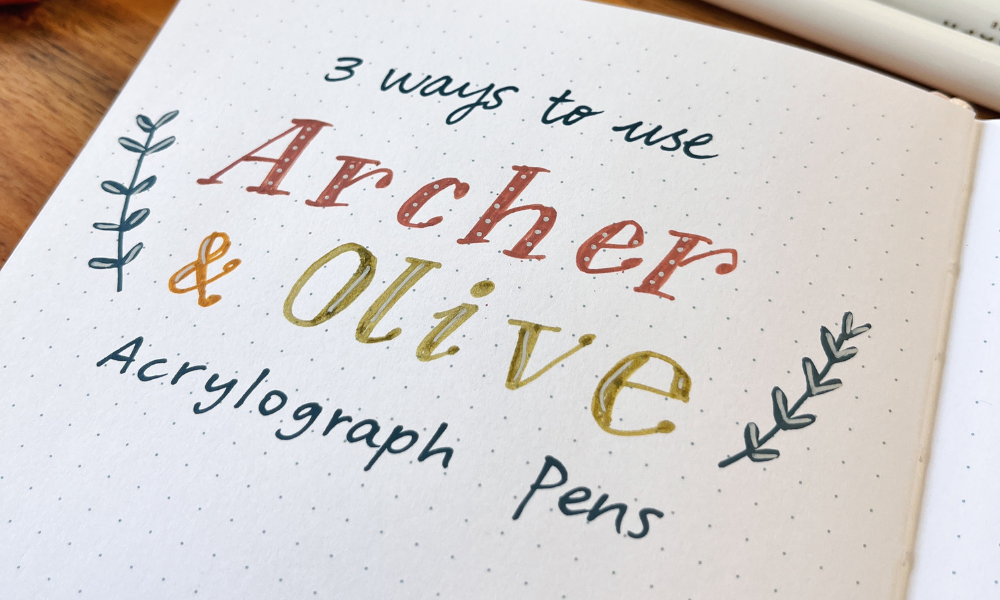 3 ways to use
Archer
& Olive
Acrylograph
Pens